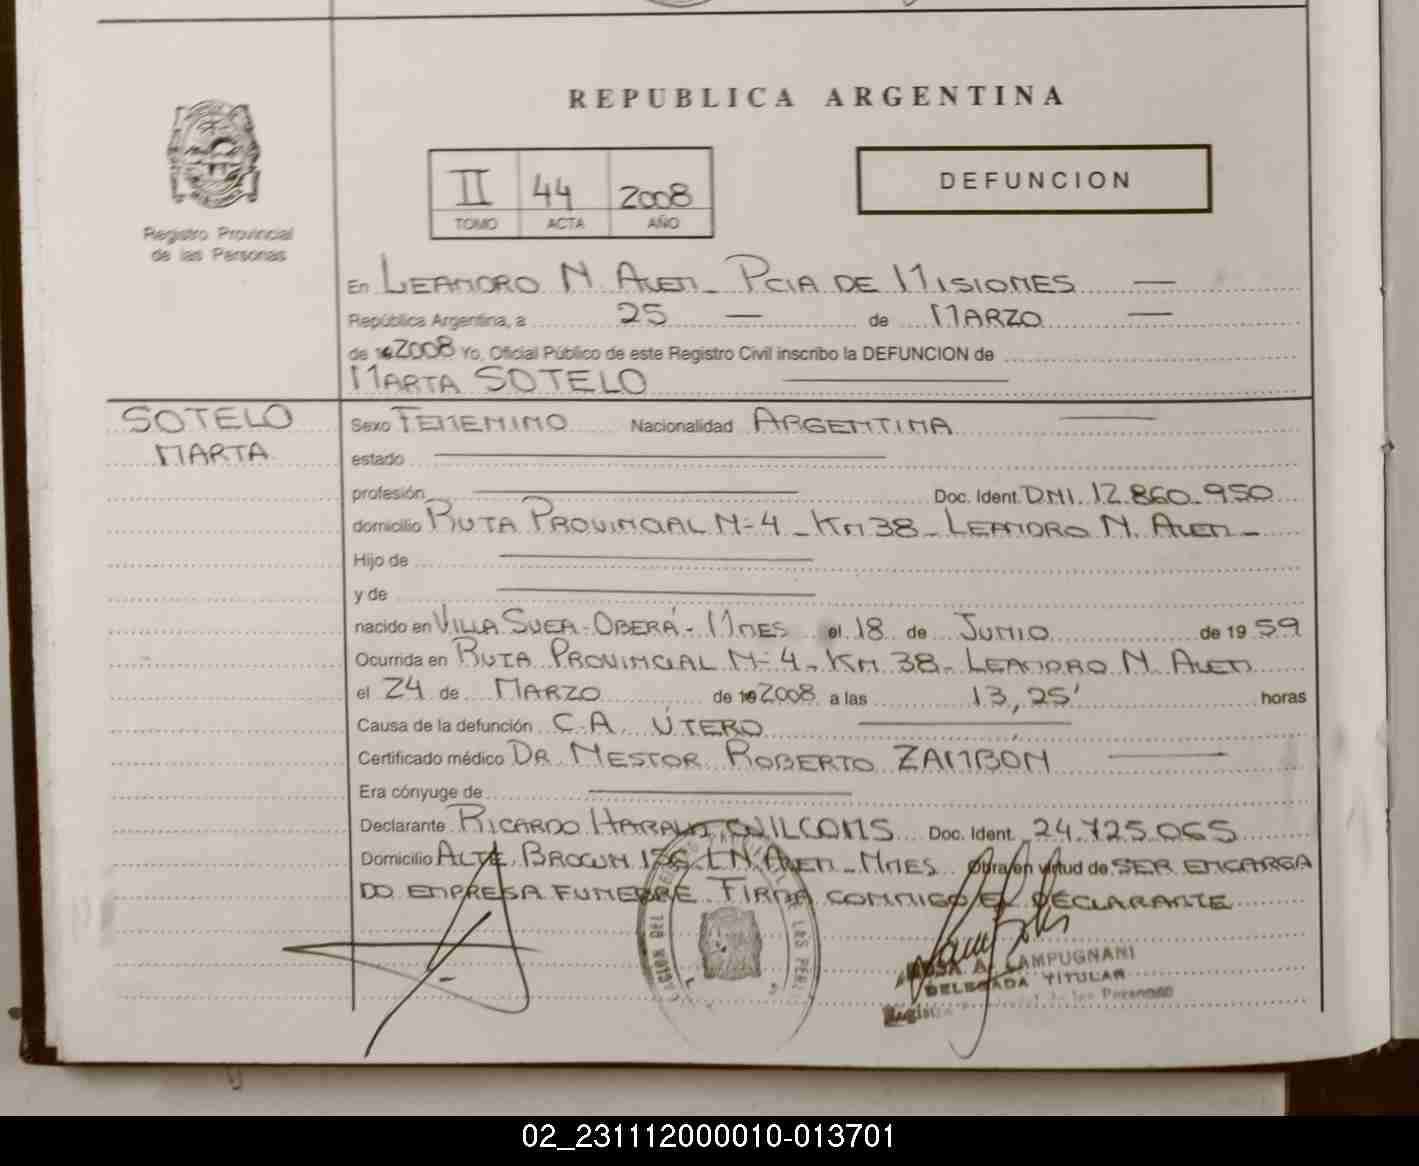 REPUBLICA ARGENTINA
II 44 2008
TOMO ACTA AÑO
DEFUNCION
Registro Provincial
de las Personas
En LEANDRO N. ALEM - PCIA DE MISIONES
República Argentina, a 25 de MARZO
de 2008 Yo, Oficial Público de este Registro Civil inscribo la DEFUNCION de
MARTA SOTELO
SOTELO
MARTA
Sexo FEMENINO Nacionalidad ARGENTINA
estado
profesión Doc. Ident. DNI. 12.860.950
domicilio RUTA PROVINCIAL N=4 - KM 38 - LEANDRO N. ALEM -
Hijo de
y de
nacido en VILLA SVEA - OBERÁ - MNES el 18 de JUNIO de 19 59
Ocurrida en RUTA PROVINCIAL N=4 - KM 38 - LEANDRO N. ALEM
el 24 de MARZO de 2008 a las 13,25' horas
Causa de la defunción C.A. ÚTERO
Certificado médico DR. NESTOR ROBERTO ZAMBON
Era cónyuge de
Declarante RICARDO Doc. Ident. 24.725.065
Domicilio ALTE. BROWN L.N. ALEM - MNES Obra en virtud de SER ENCARGA
DO EMPRESA FUNEBRE. FIRMA CONMIGO EL DECLARANTE
A. LAMPUGNANI
DELEGADA TITULAR
02_231112000010-013701